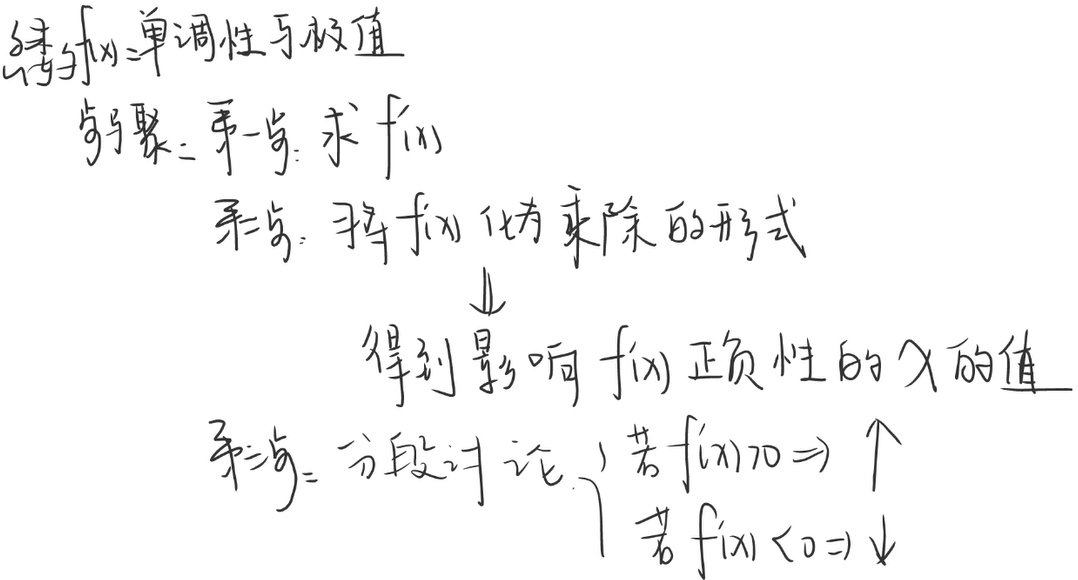 f(x)=单调性与极值
步骤: 第一步: 求 f'(x)
第二步: 将 f'(x) 化为乘除的形式
↓
得到影响 f'(x) 正负性的 x 的值
第三步: 分段讨论 { 若 f'(x)>0 ⇒ ↑
若 f'(x)<0 ⇒ ↓